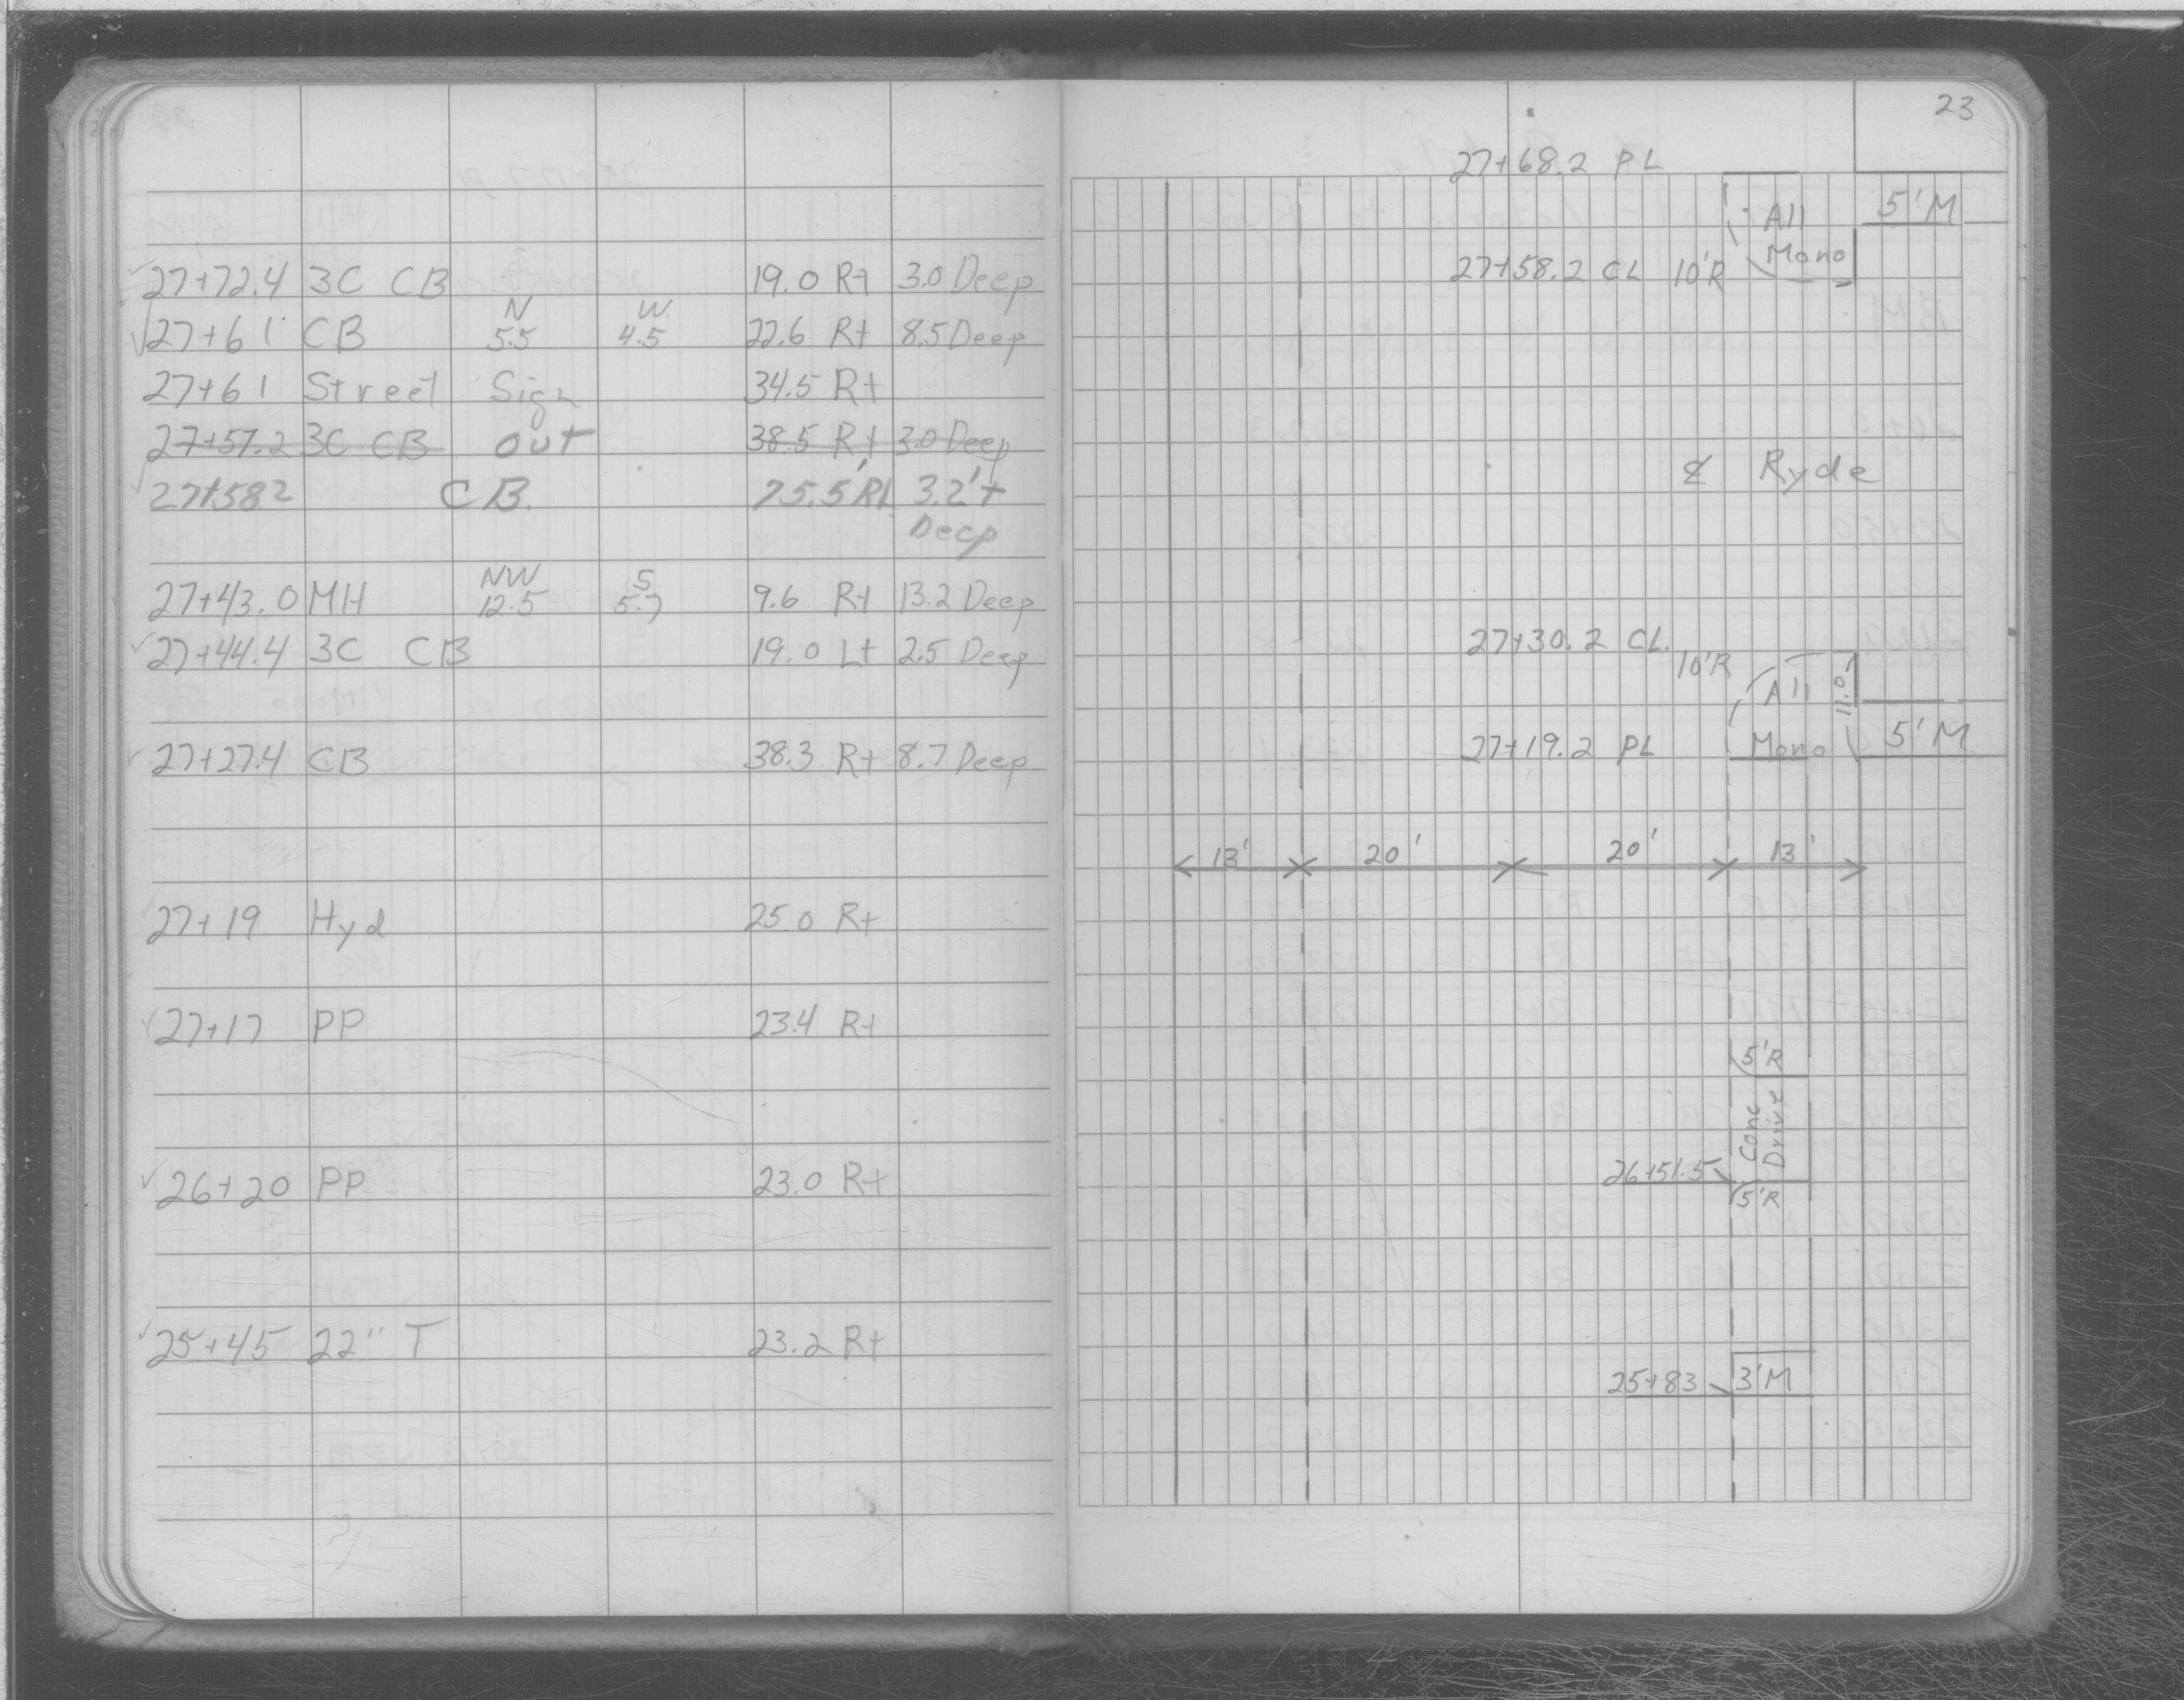 27+72.4 3C CB 19.0 Rt 3.0 Deep
N W
27+61 CB 5.5 4.5 22.6 Rt 8.5 Deep
27+61 Street Sign 34.5 Rt
27+57.2 3C CB out 38.5 Rt 3.0 Deep
27+582 CB. 75.5' Rt 3.2'+
Deep
NW S
27+43.0 MH 12.5 5.7 9.6 Rt 13.2 Deep
27+44.4 3C CB 19.0 Lt 2.5 Deep
27+27.4 CB 38.3 Rt 8.7 Deep
27+19 Hyd 25.0 Rt
27+17 PP 23.4 Rt
26+20 PP 23.0 Rt
25+45 22" T 23.2 Rt
23
27+68.2 PL
All 5'M
Mono
27+58.2 CL 10'R
℄ Ryde
27+30.2 CL.
10'R
All 11.0'
27+19.2 PL Mono 5'M
13' 20' 20' 13'
5'R
Conc
Drive
26+51.5
5'R
25+83 3'M